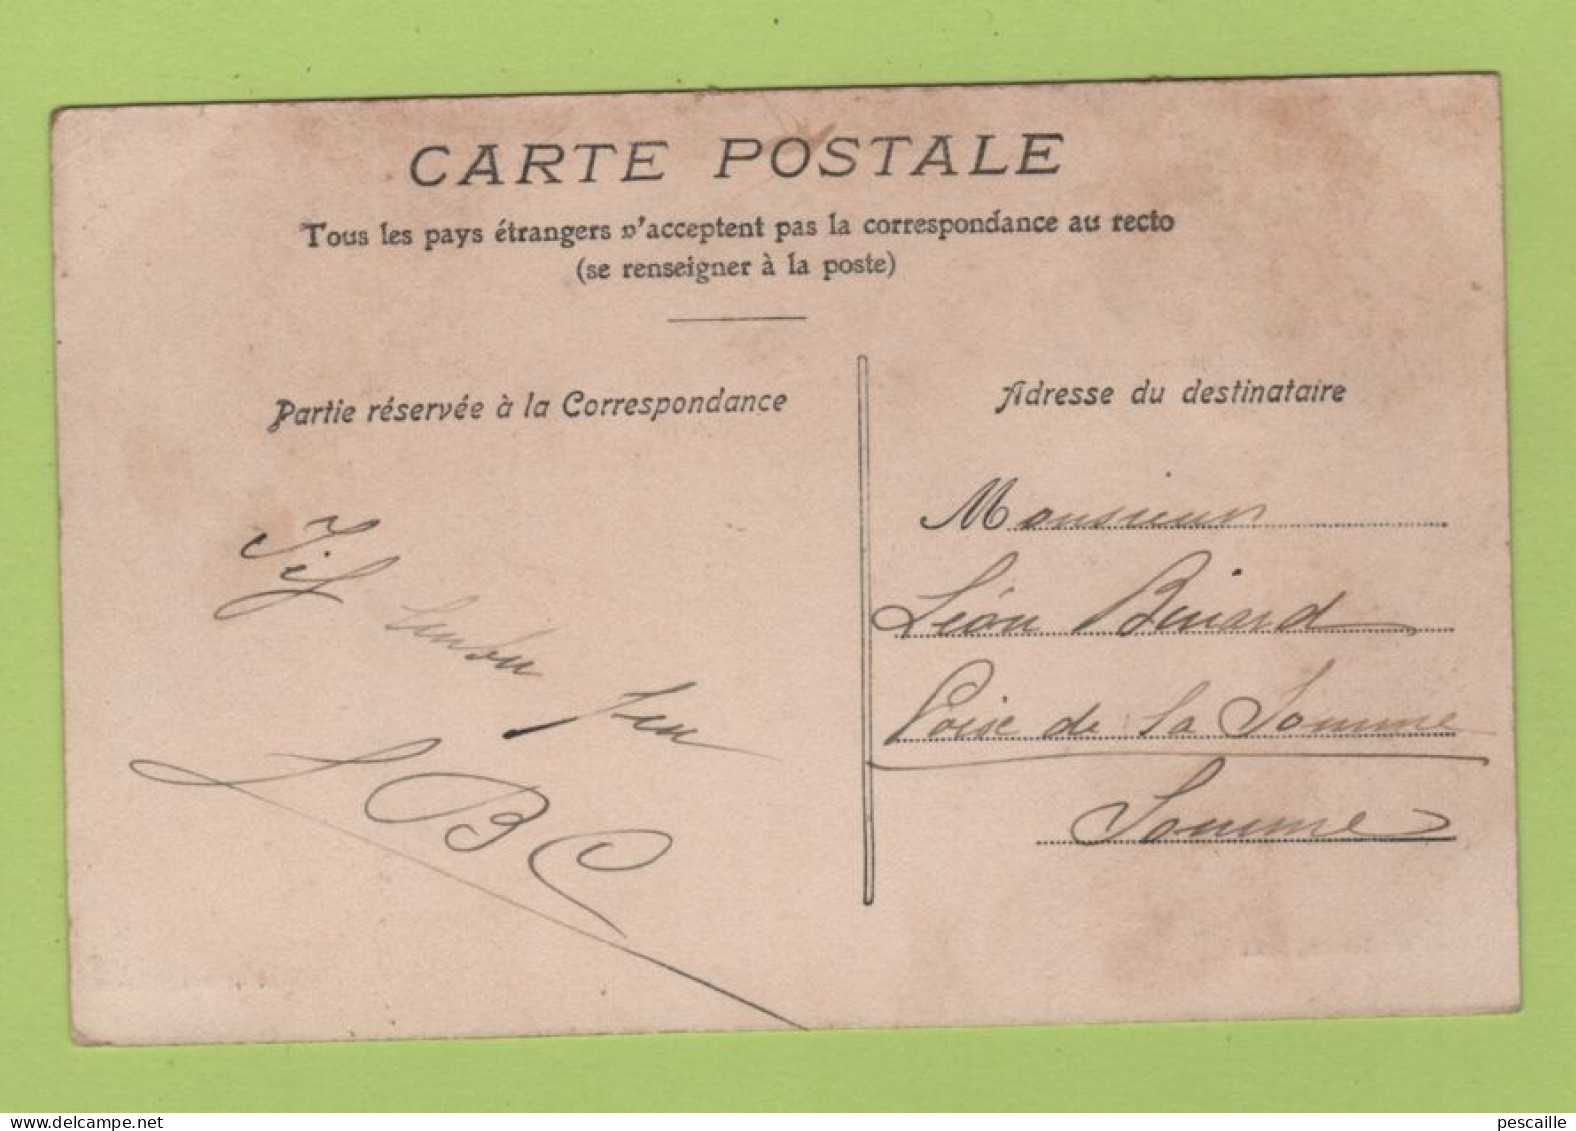 CARTE POSTALE
Tous les pays étrangers n'acceptent pas la correspondance au recto
(se renseigner à la poste)
Partie réservée à la Correspondance
Adresse du destinataire
Monsieur
Léon Binard
de la Somme
Somme
pescaille